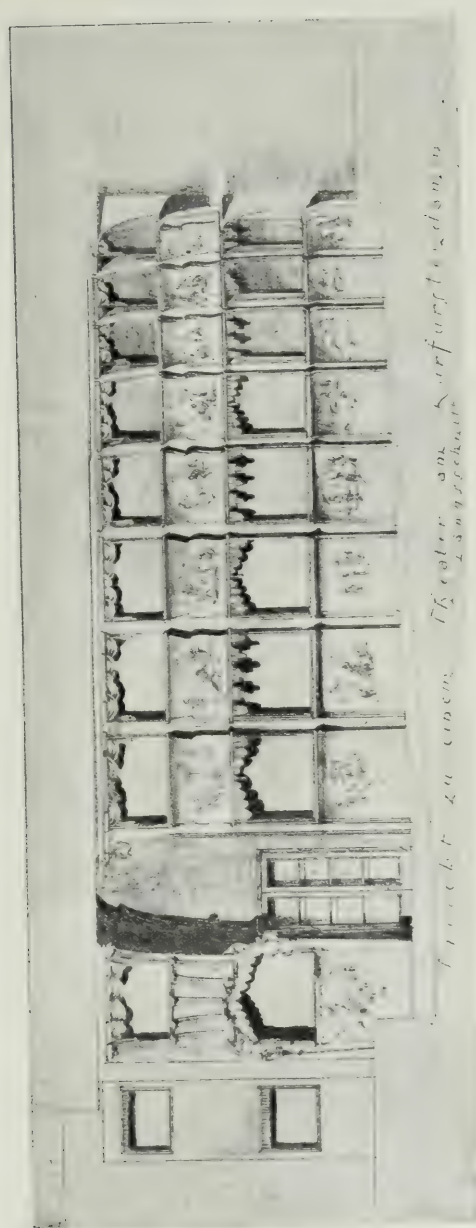 zu einem Theater am Kurfürstendamm
Längsschnitt